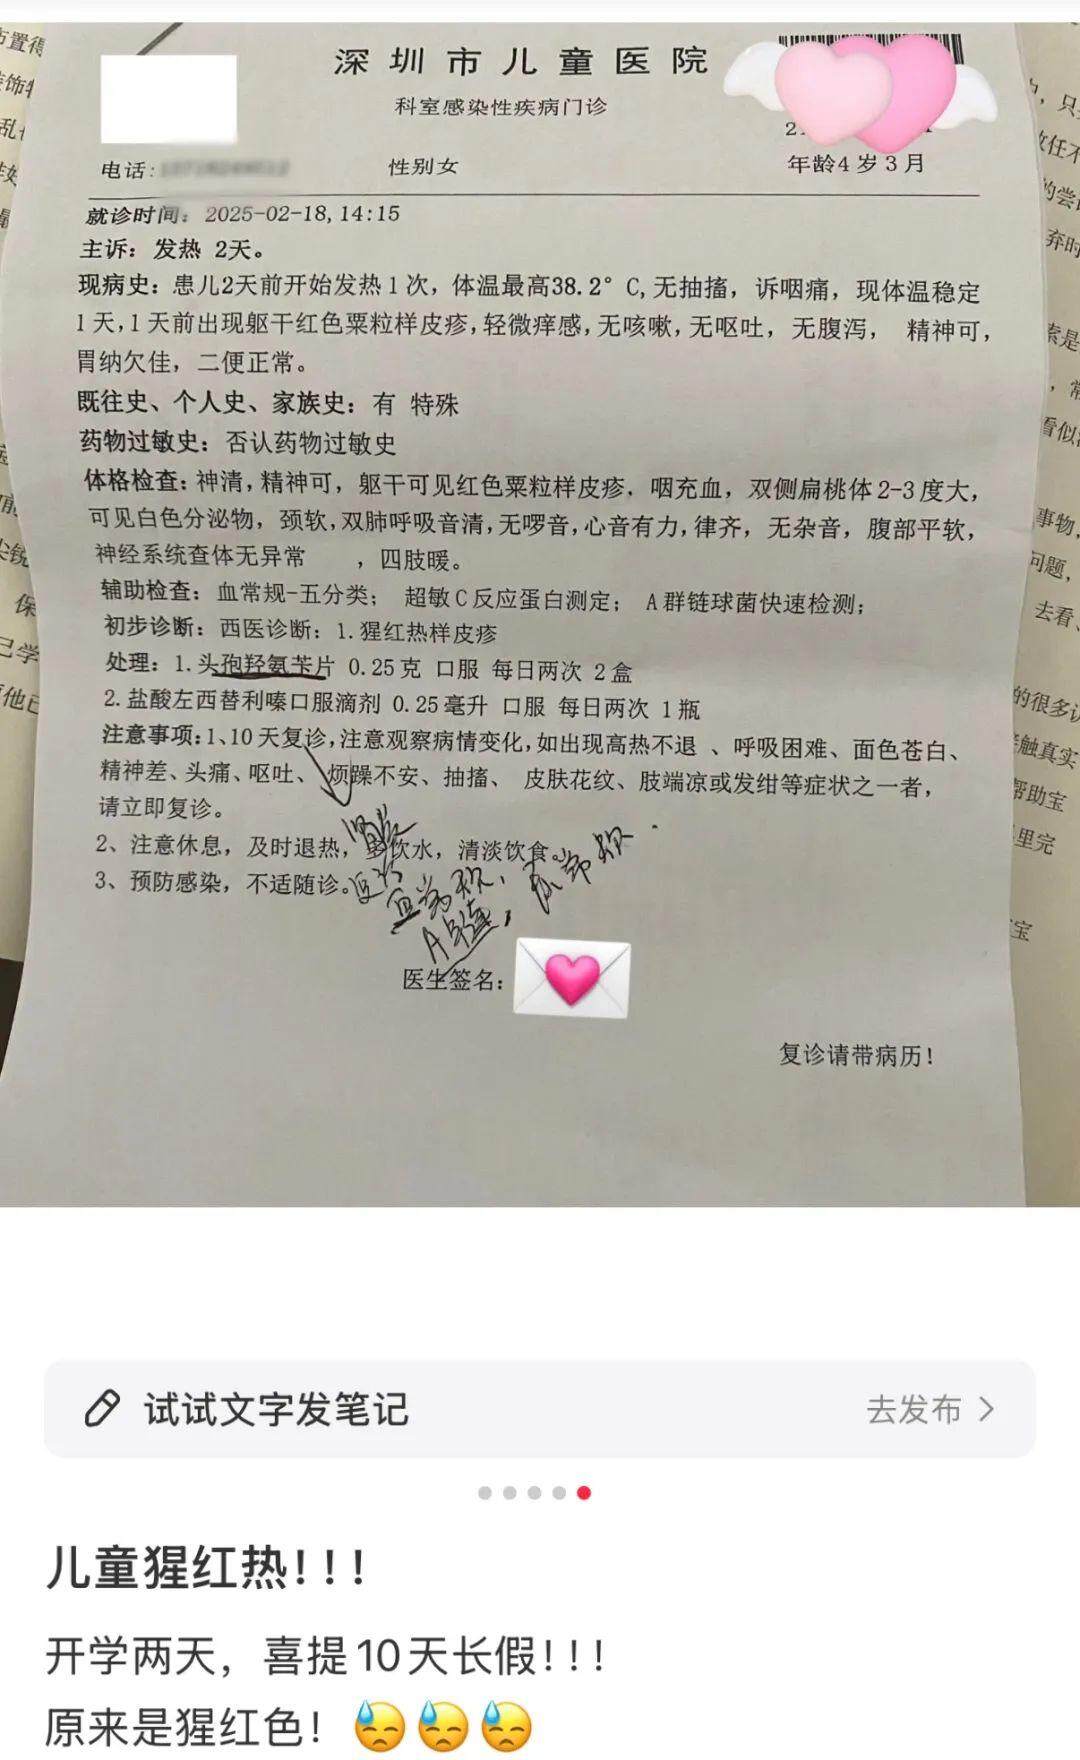 深圳市儿童医院
科室感染性疾病门诊
电话: 性别女 年龄4岁3月
就诊时间：2025-02-18,14:15
主诉：发热 2天。
现病史：患儿2天前开始发热1次，体温最高38.2°C,无抽搐，诉咽痛，现体温稳定
1天,1天前出现躯干红色粟粒样皮疹,轻微痒感,无咳嗽,无呕吐，无腹泻， 精神可,
胃纳欠佳，二便正常。
既往史、个人史、家族史：有 特殊
药物过敏史：否认药物过敏史
体格检查:神清,精神可，躯干可见红色粟粒样皮疹，咽充血，双侧扁桃体2-3度大,
可见白色分泌物，颈软,双肺呼吸音清,无啰音,心音有力,律齐，无杂音，腹部平软,
神经系统查体无异常 ，四肢暖。
辅助检查：血常规-五分类； 超敏C反应蛋白测定； A群链球菌快速检测；
初步诊断：西医诊断：1.猩红热样皮疹
处理：1.头孢羟氨苄片 0.25克 口服 每日两次 2盒
2.盐酸左西替利嗪口服滴剂 0.25毫升 口服 每日两次 1瓶
注意事项:1、10天复诊,注意观察病情变化,如出现高热不退 、呼吸困难、面色苍白、
精神差、头痛、呕吐、 烦躁不安、抽搐、 皮肤花纹、肢端凉或发绀等症状之一者，
请立即复诊。
2、注意休息，及时退热，多饮水，清淡饮食。
3、预防感染，不适随诊。
血常规，尿常规
A链，
医生签名：
复诊请带病历！
试试文字发笔记 去发布
儿童猩红热！！！
开学两天，喜提10天长假！！！
原来是猩红色！😓😓😓